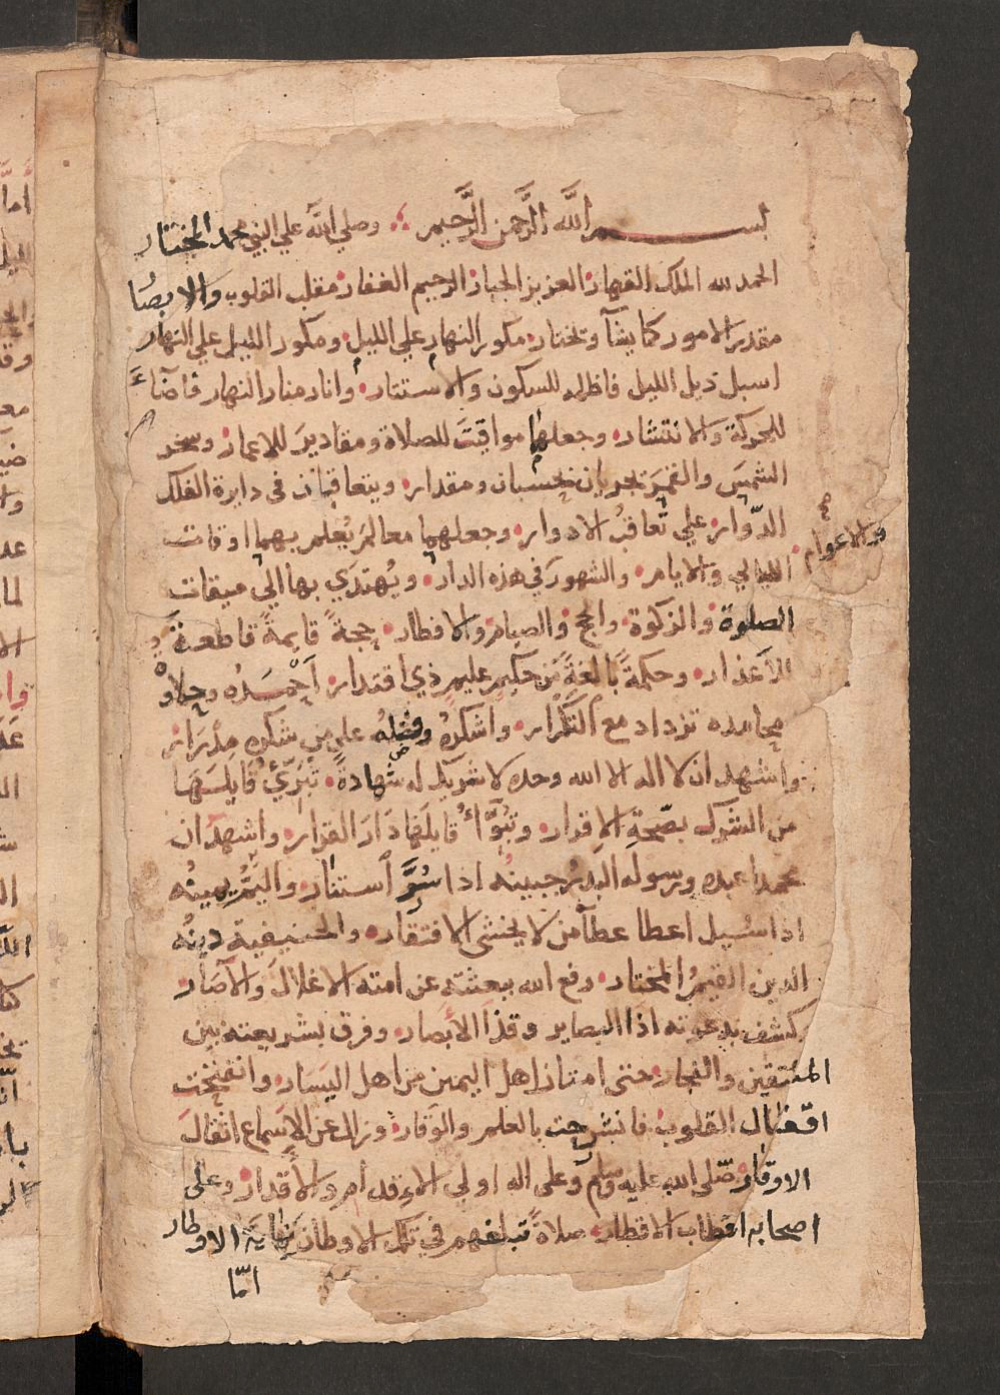 بسم الله الرحمن الرحيم وصلي الله علي النبي محمد المختار
الحمد لله الملك القهار العزيز الجبار الرحيم الغفار مقلب القلوب والابصا
مقدر الامور كما يشآ ويختار مكور النهار علي الليل ومكور الليل علي النهار
اسبل ذيل الليل فاظلم للسكون والاستتار وانار منار النهار فاضآء
للحركة والانتشار وجعلها مواقيتَ للصلاة ومقاديرَ للاعمار وسخر
الشمسَ والقمرَ تجريان بحسبان ومقدار ويتعاقبان في دايرة الفلك
الدّوار علي تعاقُب الادوار وجعلهما معالمَ يُعلم بهما اوقات
الليالي والايام والشهور في هذه الدار ويُهتدَي بها الي ميقات
والاعوام
الصلوة والزكوة والحج والصيام والافطار حجةً قايمةً قاطعةً
الاَعذار وحكمةً بالغةً من حكيم عليم ذي اقتدار اَحْمَدُه
محامده تزداد مع التكرار واشكرُه وفضلُه علي من شكره مِدْرَار
واشهد ان لا اله الا الله وحده لا شريك له شهادةً تُبَرّيُ قايلَهَا
من الشرك بصّحةِ الاِقرار وتُبَوّاُ قايلَها دَارَ القرار واشهد ان
محمدا عبده ورسوله البدرُ جبينُه اذا سُرَّ استنار واليَمُّ يمينُه
اذا سُيل اعطا عطآ من لا يخشي الافتقار والحنيفية دينُه
الدين القيمُ المختار رفع الله ببعثته عن امته الاغلالَ والآصَار
كشف بدعوته اذَا البصاير وقذَا الاَبصار وفرق بشريعته بين
المتقين والفجار حتى امتاز اهل اليمين من اهل اليَسَار وانفتحت
اقفال القلوب فانشرحت بالعلم والوقار وزال عن الاَسماع اثقالَ
الاوقار صّلي الله عليه وسلم وعلي اله اولي الاقدام والاقدار وعلى
اصحابه اقطاب الاقطار صلاةً تبلغهم في تلك الاوطان نهايَةَ الاوطار
امّا